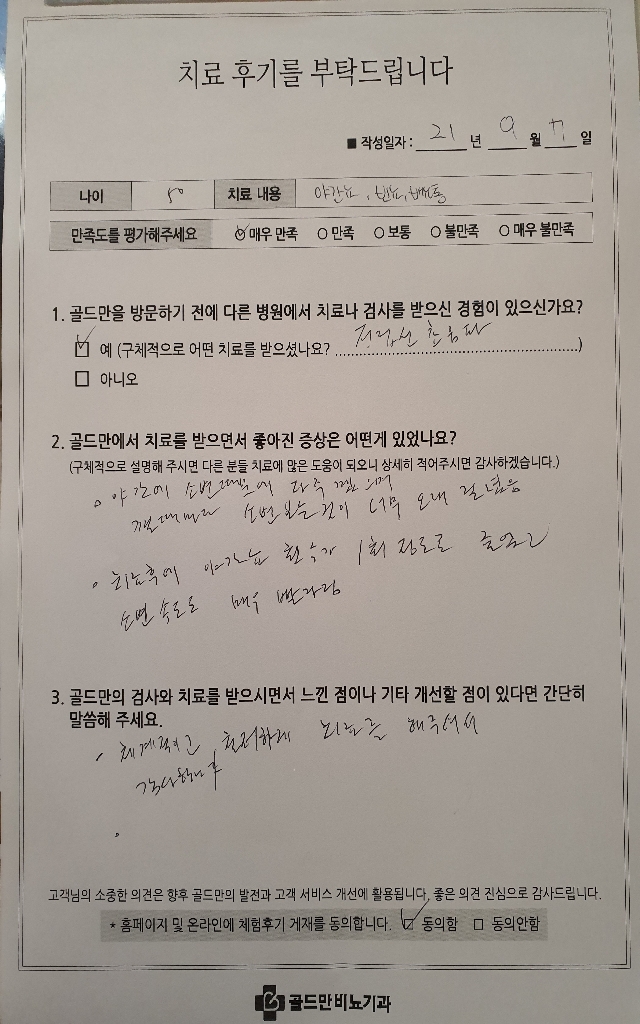 치료 후기를 부탁드립니다
■ 작성일자 : 21 년 9 월 17 일
나이 50 치료 내용 야간뇨, 빈뇨,
만족도를 평가해주세요 매우 만족 만족 보통 불만족 매우 불만족
1. 골드만을 방문하기 전에 다른 병원에서 치료나 검사를 받으신 경험이 있으신가요?
예 (구체적으로 어떤 치료를 받으셨나요? 전립선 초음파)
아니오
2. 골드만에서 치료를 받으면서 좋아진 증상은 어떤게 있었나요?
(구체적으로 설명해 주시면 다른 분들 치료에 많은 도움이 되오니 상세히 적어주시면 감사하겠습니다.)
야간에 소변때문에 자주 깼으며
깰때마다 소변보는것이 너무 오래 걸렸음
치료후에 야간뇨 횟수가 1회 정도로 줄었고
소변 속도도 매우 빨라짐
3. 골드만의 검사와 치료를 받으시면서 느낀 점이나 기타 개선할 점이 있다면 간단히
말씀해 주세요.
체계적이고 철저하게 치료를 해주셔서
감사합니다
고객님의 소중한 의견은 향후 골드만의 발전과 고객 서비스 개선에 활용됩니다. 좋은 의견 진심으로 감사드립니다.
* 홈페이지 및 온라인에 체험후기 게재를 동의합니다. 동의함 동의안함
골드만비뇨기과